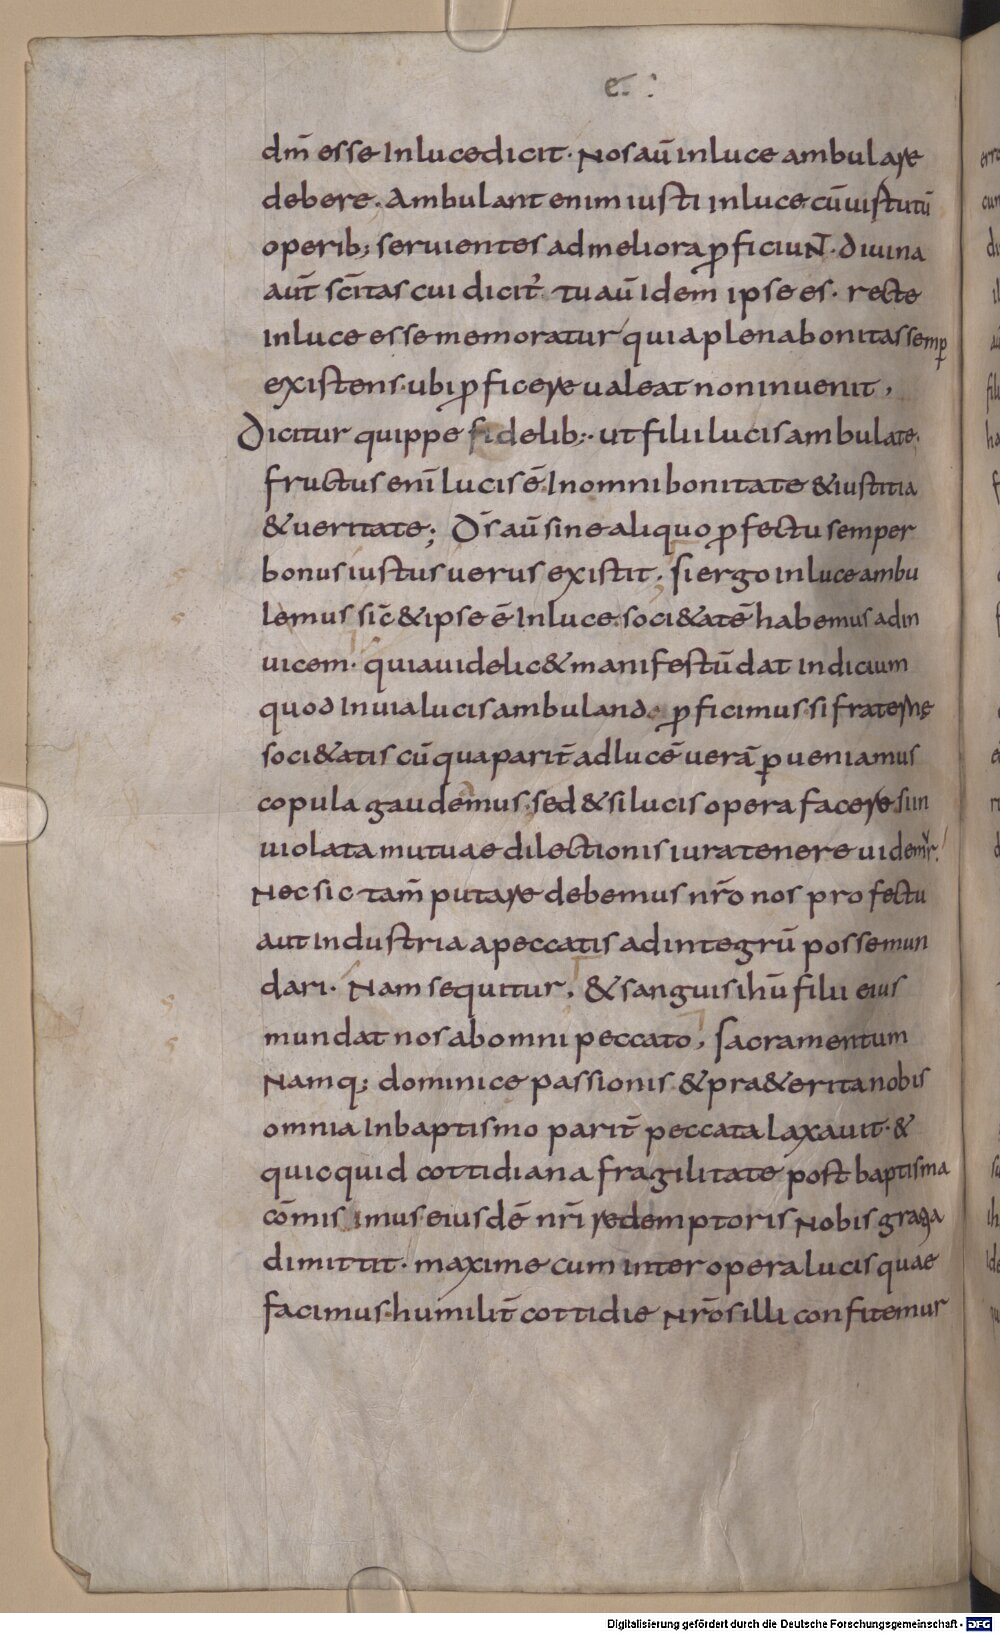 e. :
dm̄ esse Inluce dicit · Nos aū inluce ambulare
debere · Ambulant enim iusti inluce cū uirtutū
operib; seruientes ad meliora ꝓficiuNT̄ · diuina
aut̄ sc̄itas cui dicit᷒ tu aū idem ipse es · recte
inluce esse memoratur quia plena bonitas semꝑ
existens · ubi ꝓficere ualeat non inuenit ,
Dicitur quippe fidelib; · ut filii lucis ambulate ·
fructus enī lucis ē In omni bonitate & iustitia
& ueritate ; Ds̄ aū sine aliquo ꝓfectu semper
bonus iustus uerus existit · si ergo in luce ambu
lemus sic̄ & ipse ē Inluce · soci&atē habemus adin
uicem · quia uidelic& manifestū dat indicium
quod In uia lucis ambulando ꝓficimus · si fraternę
soci&atis cū qua parit̄ ad lucē uerā ꝑueniamus
copula gaudemus · sed & si lucis opera facere siin
uiolata mutuae dilectionis iura tenere uidemur ·
Nec sic tam̄ putare debemus nr̄o nos profectu
aut industria a peccatis ad integrū posse mun
dari · Nam sequitur , & sanguis ihū filii eius
mundat nos ab omni peccato , sacramentum
Namq; dominice passionis & pra&erita nobis
omnia In baptismo parit̄ peccata laxauit · &
quicquid cottidiana fragilitate post baptisma
cōmisimus eiusdē nr̄i redemptoris Nobis gratia
dimittit · maxime cum inter opera lucis quae
facimus · humilit̄ cottidie Nr̄os illi confitemur
Digitalisierung gefördert durch die Deutsche Forschungsgemeinschaft - DFG